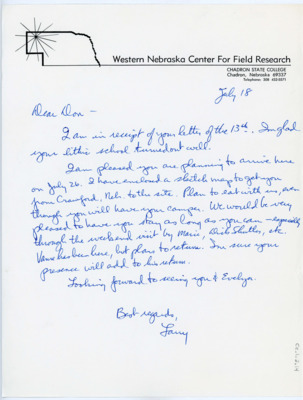 Western Nebraska Center For Field Research
CHADRON STATE COLLEGE
Chadron, Nebraska 69337
July 18
Dear Don -
I am in receipt of your letter of the 13th. I'm glad
your lithic school turned out well.
I am pleased you are planning to arrive here
on July 26. I have enclosed a sketch map to get you
from Crawford, Neb. to the site. Plan to eat with us, even
though you will have your camper. We would be very
pleased to have you stay as long as you can - especially
through the weekend visit by Marie, Dick Shutler, etc.
Vance has been here, but plans to return. I'm sure your
presence will add to his return.
Looking forward to seeing you & Evelyn.
Best regards,
Larry